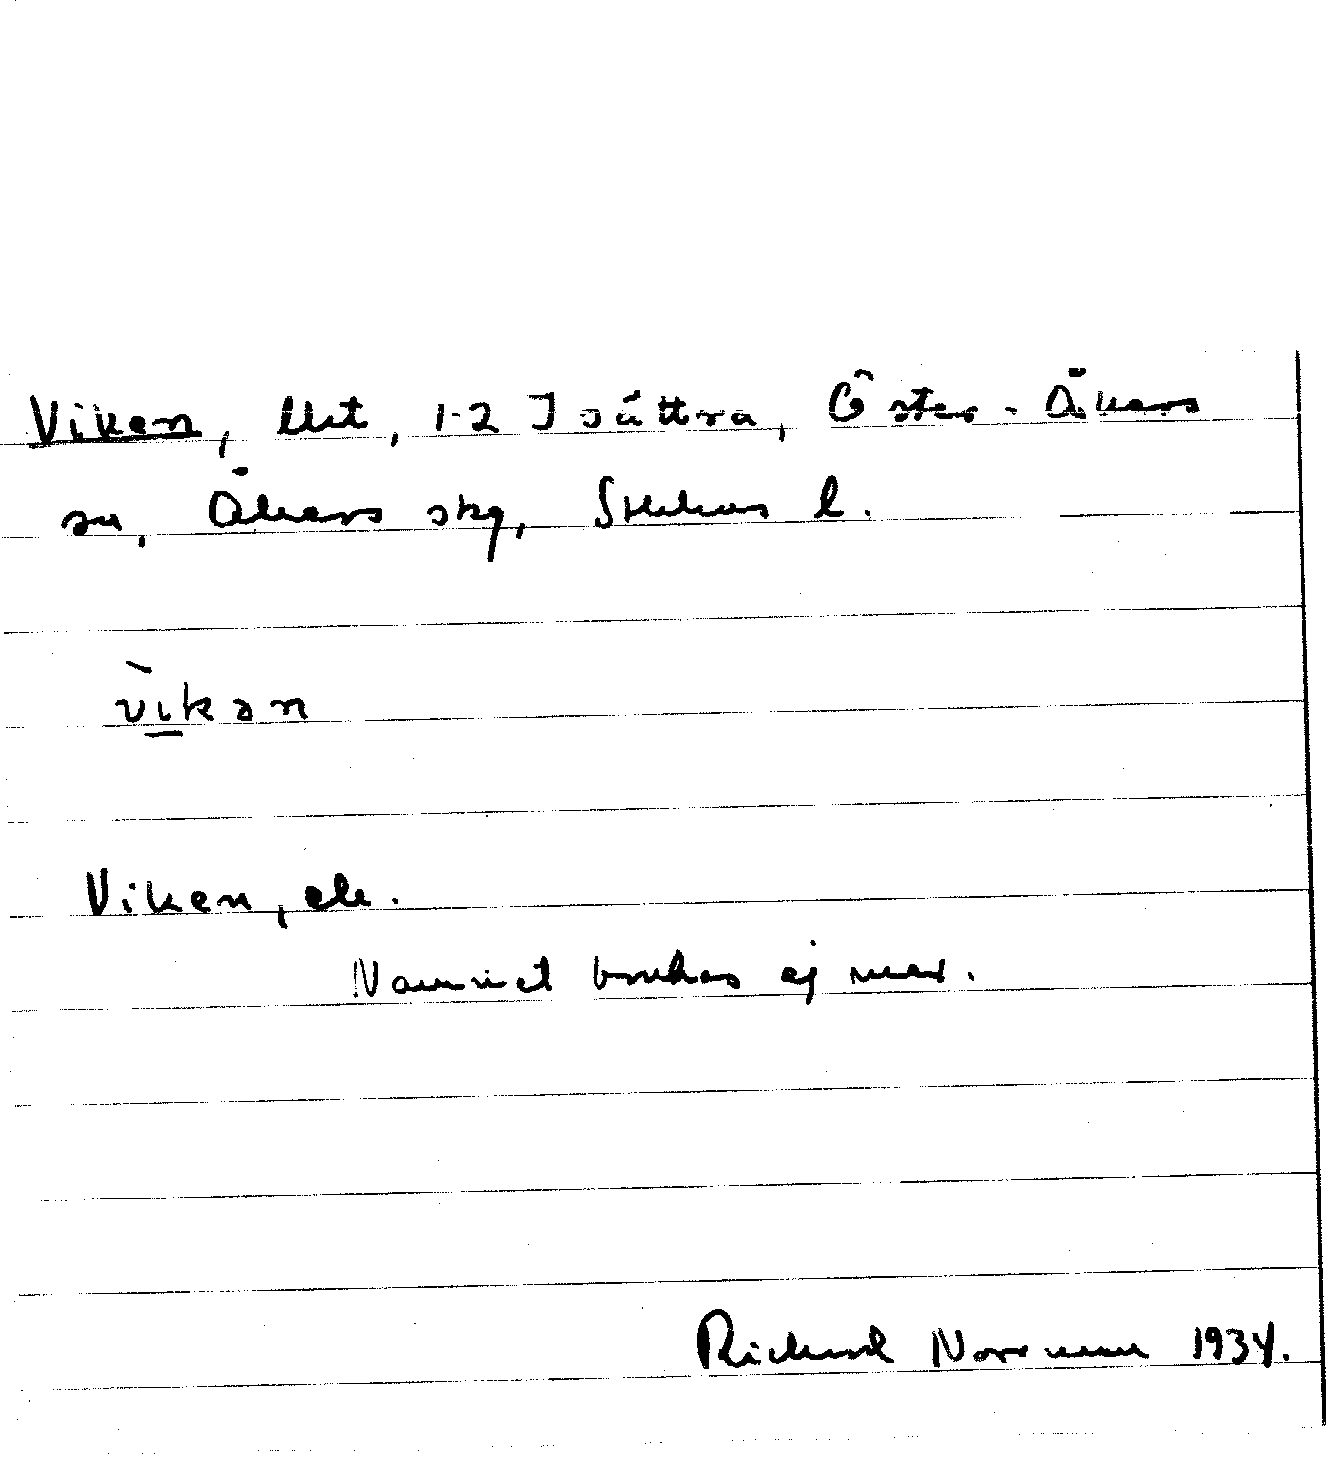 Viken, llht, 1-2 Isättra, Öster-Åkers
sn, Åkers skg, Sthlms l.
vìkan
Viken, ek.
Namnet brukas ej mer.
Richard Norrman 1934.